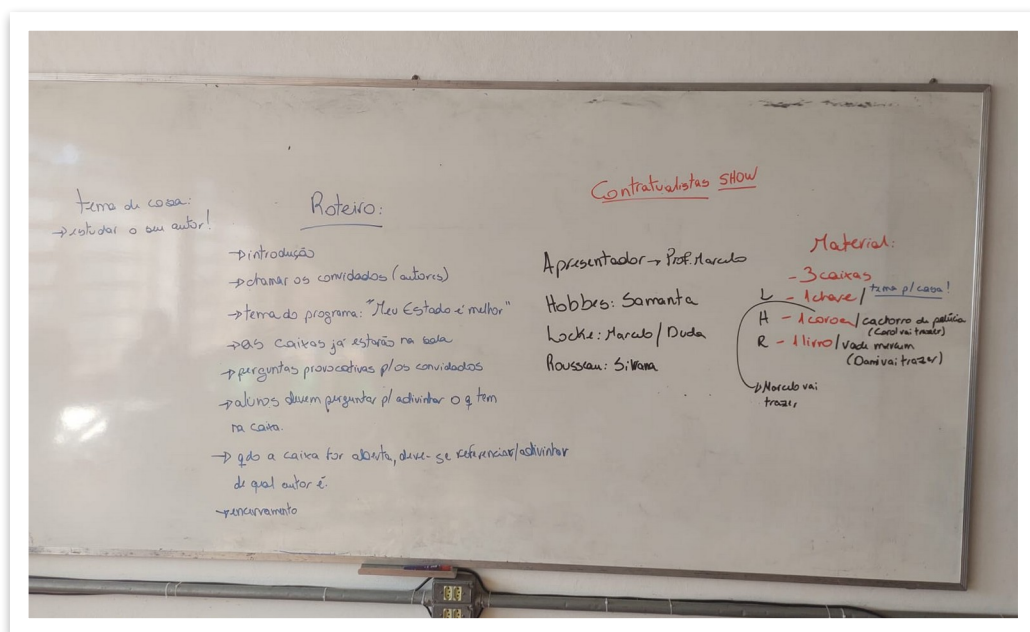 tema de casa:
→ estudar o seu autor!
Roteiro:
→ introdução
→ chamar os convidados (autores)
→ tema do programa: "Meu Estado é melhor"
→ as caixas já estarão na sala
→ perguntas provocativas p/ os convidados
→ alunos devem perguntar p/ adivinhar o q tem
na caixa.
→ qdo a caixa for aberta, deve-se referenciar/adivinhar
de qual autor é.
→ encerramento
Contratualistas SHOW
Apresentador → Prof. Marcelo
Hobbes: Samanta
Locke: Marcelo / Duda
Rousseau: Silvana
Material:
- 3 caixas
L - 1 chave / tema p/ casa!
H - 1 coroa / cachorro de pelúcia
(Carol vai trazer)
R - 1 livro / vade mecum
(Dani vai trazer)
→ Marcelo vai
trazer